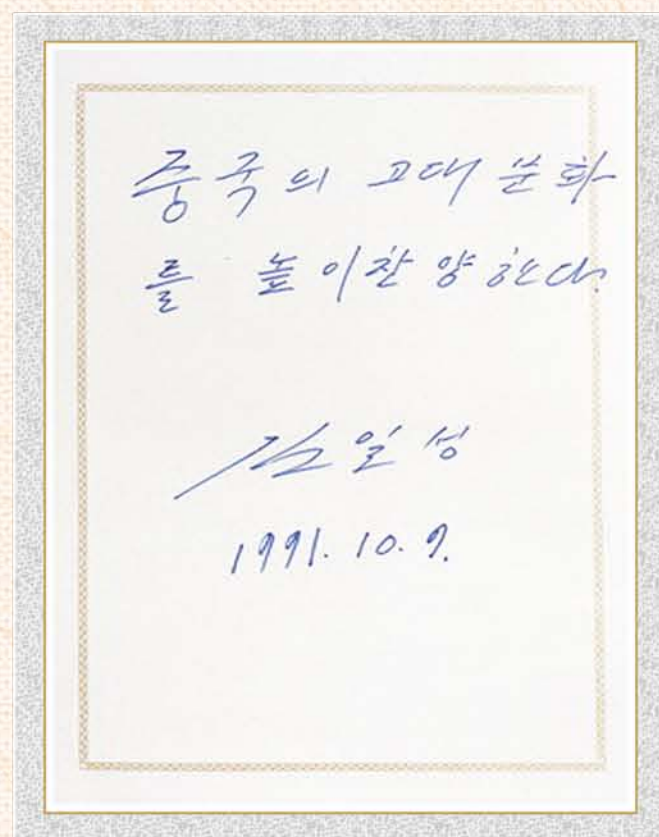 중국의 고대문화
를 높이찬양한다.
김일성
1991. 10. 9.